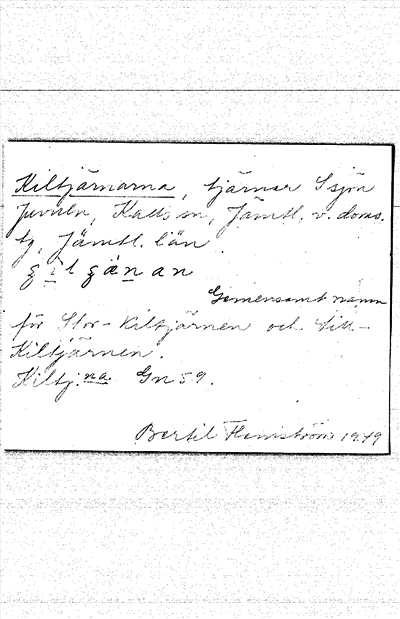 Kiltjärnarna, tjärnar S sjön
Juvuln, Kalls sn, Jämtl. v. doms.
tg, Jämtl. län
g i l g ä n a n
Gemensamt namn
för Stor-Kiltjärnen och Lill-
Kiltjärnen.
Kiltj:na Gn 59.
Bertil Flemström 1949